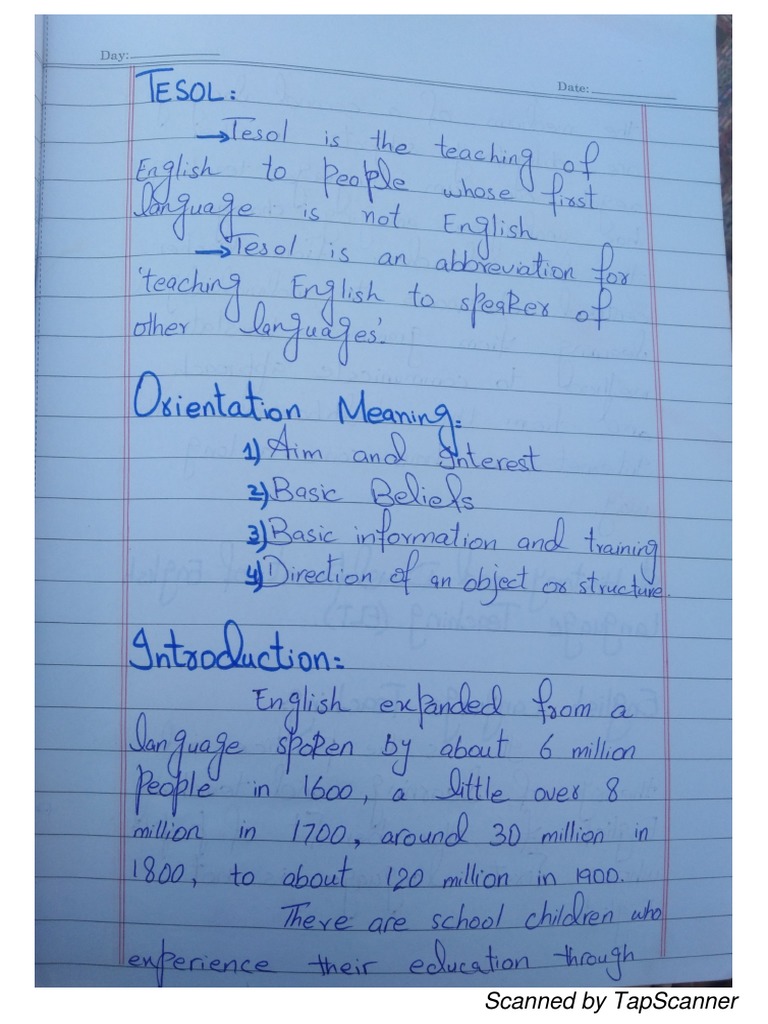 Day:
Date:
TESOL:
→Tesol is the teaching of
English to people whose first
language is not English
→Tesol is an abbreviation for
'teaching English to speaker of
other languages'.
Orientation Meaning:
1) Aim and Interest
2) Basic Beliefs
3) Basic information and training
4) Direction of an object or structure.
Introduction:
English expanded from a
language spoken by about 6 million
people in 1600, a little over 8
million in 1700, around 30 million in
1800, to about 120 million in 1900.
There are school children who
experience their education through
Scanned by TapScanner